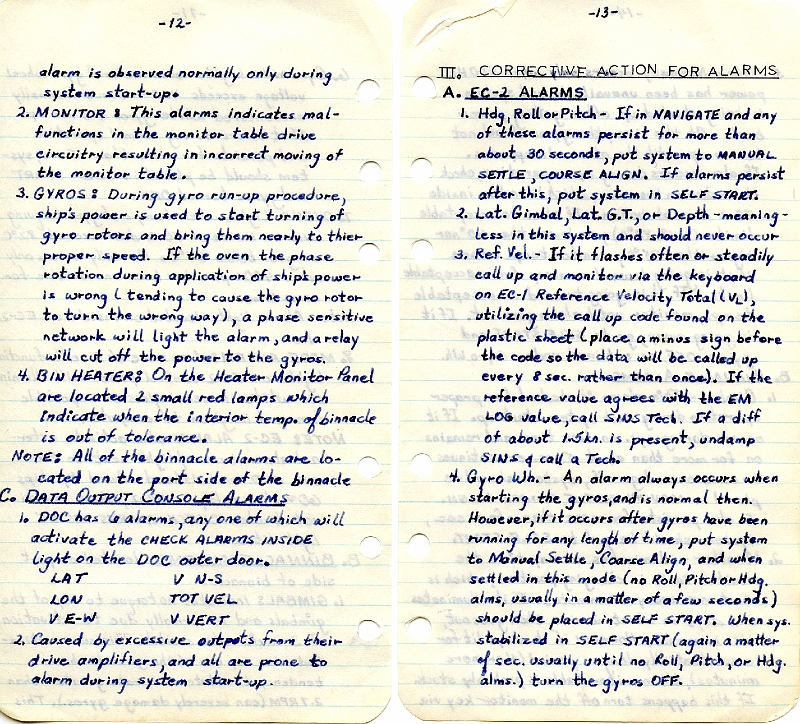 -12-
alarm is observed normally only during
system start-up.
2. MONITOR: This alarms indicates mal-
functions in the monitor table drive
circuitry resulting in incorrect moving of
the monitor table.
3. GYROS: During gyro run-up procedure,
ship's power is used to start turning of
gyro rotors and bring them nearly to thier
proper speed. If the oven the phase
rotation during application of ship's power
is wrong (tending to cause the gyro rotor
to turn the wrong way), a phase sensitive
network will light the alarm, and a relay
will cut off the power to the gyros.
4. BIN HEATER: On the Heater Monitor Panel
are located 2 small red lamps which
indicate when the interior temp. of binnacle
is out of tolerance.
NOTE: All of the binnacle alarms are lo-
cated on the port side of the binnacle
C. DATA OUTPUT CONSOLE ALARMS
1. DOC has 6 alarms, any one of which will
activate the CHECK ALARMS INSIDE
light on the DOC outer door.
LAT V N-S
LON TOT VEL
V E-W V VERT
2. Caused by excessive outputs from their
drive amplifiers, and all are prone to
alarm during system start-up.
-13-
III. CORRECTIVE ACTION FOR ALARMS
A. EC-2 ALARMS
1. Hdg, Roll or Pitch - If in NAVIGATE and any
of these alarms persist for more than
about 30 seconds, put system to MANUAL
SETTLE, COURSE ALIGN. If alarms persist
after this, put system in SELF START.
2. Lat. Gimbal, Lat. G.T., or Depth - meaning-
less in this system and should never occur
3. Ref. Vel. - If it flashes often or steadily
call up and monitor via the keyboard
on EC-1 Reference Velocity Total (VL),
utilizing the call up code found on the
plastic sheet (place a minus sign before
the code so the data will be called up
every 8 sec. rather than once). If the
reference value agrees with the EM
LOG value, call SINS Tech. If a diff
of about 1.5 kn. is present, undamp
SINS & call a Tech.
4. Gyro Wh. - An alarm always occurs when
starting the gyros, and is normal then.
However, if it occurs after gyros have been
running for any length of time, put system
to Manual Settle, Coarse Align, and when
settled in this mode (no Roll, Pitch or Hdg.
alms, usually in a matter of a few seconds)
should be placed in SELF START. When sys.
stabilized in SELF START (again a matter
of sec. usually until no Roll, Pitch, or Hdg.
alms.) turn the gyros OFF.